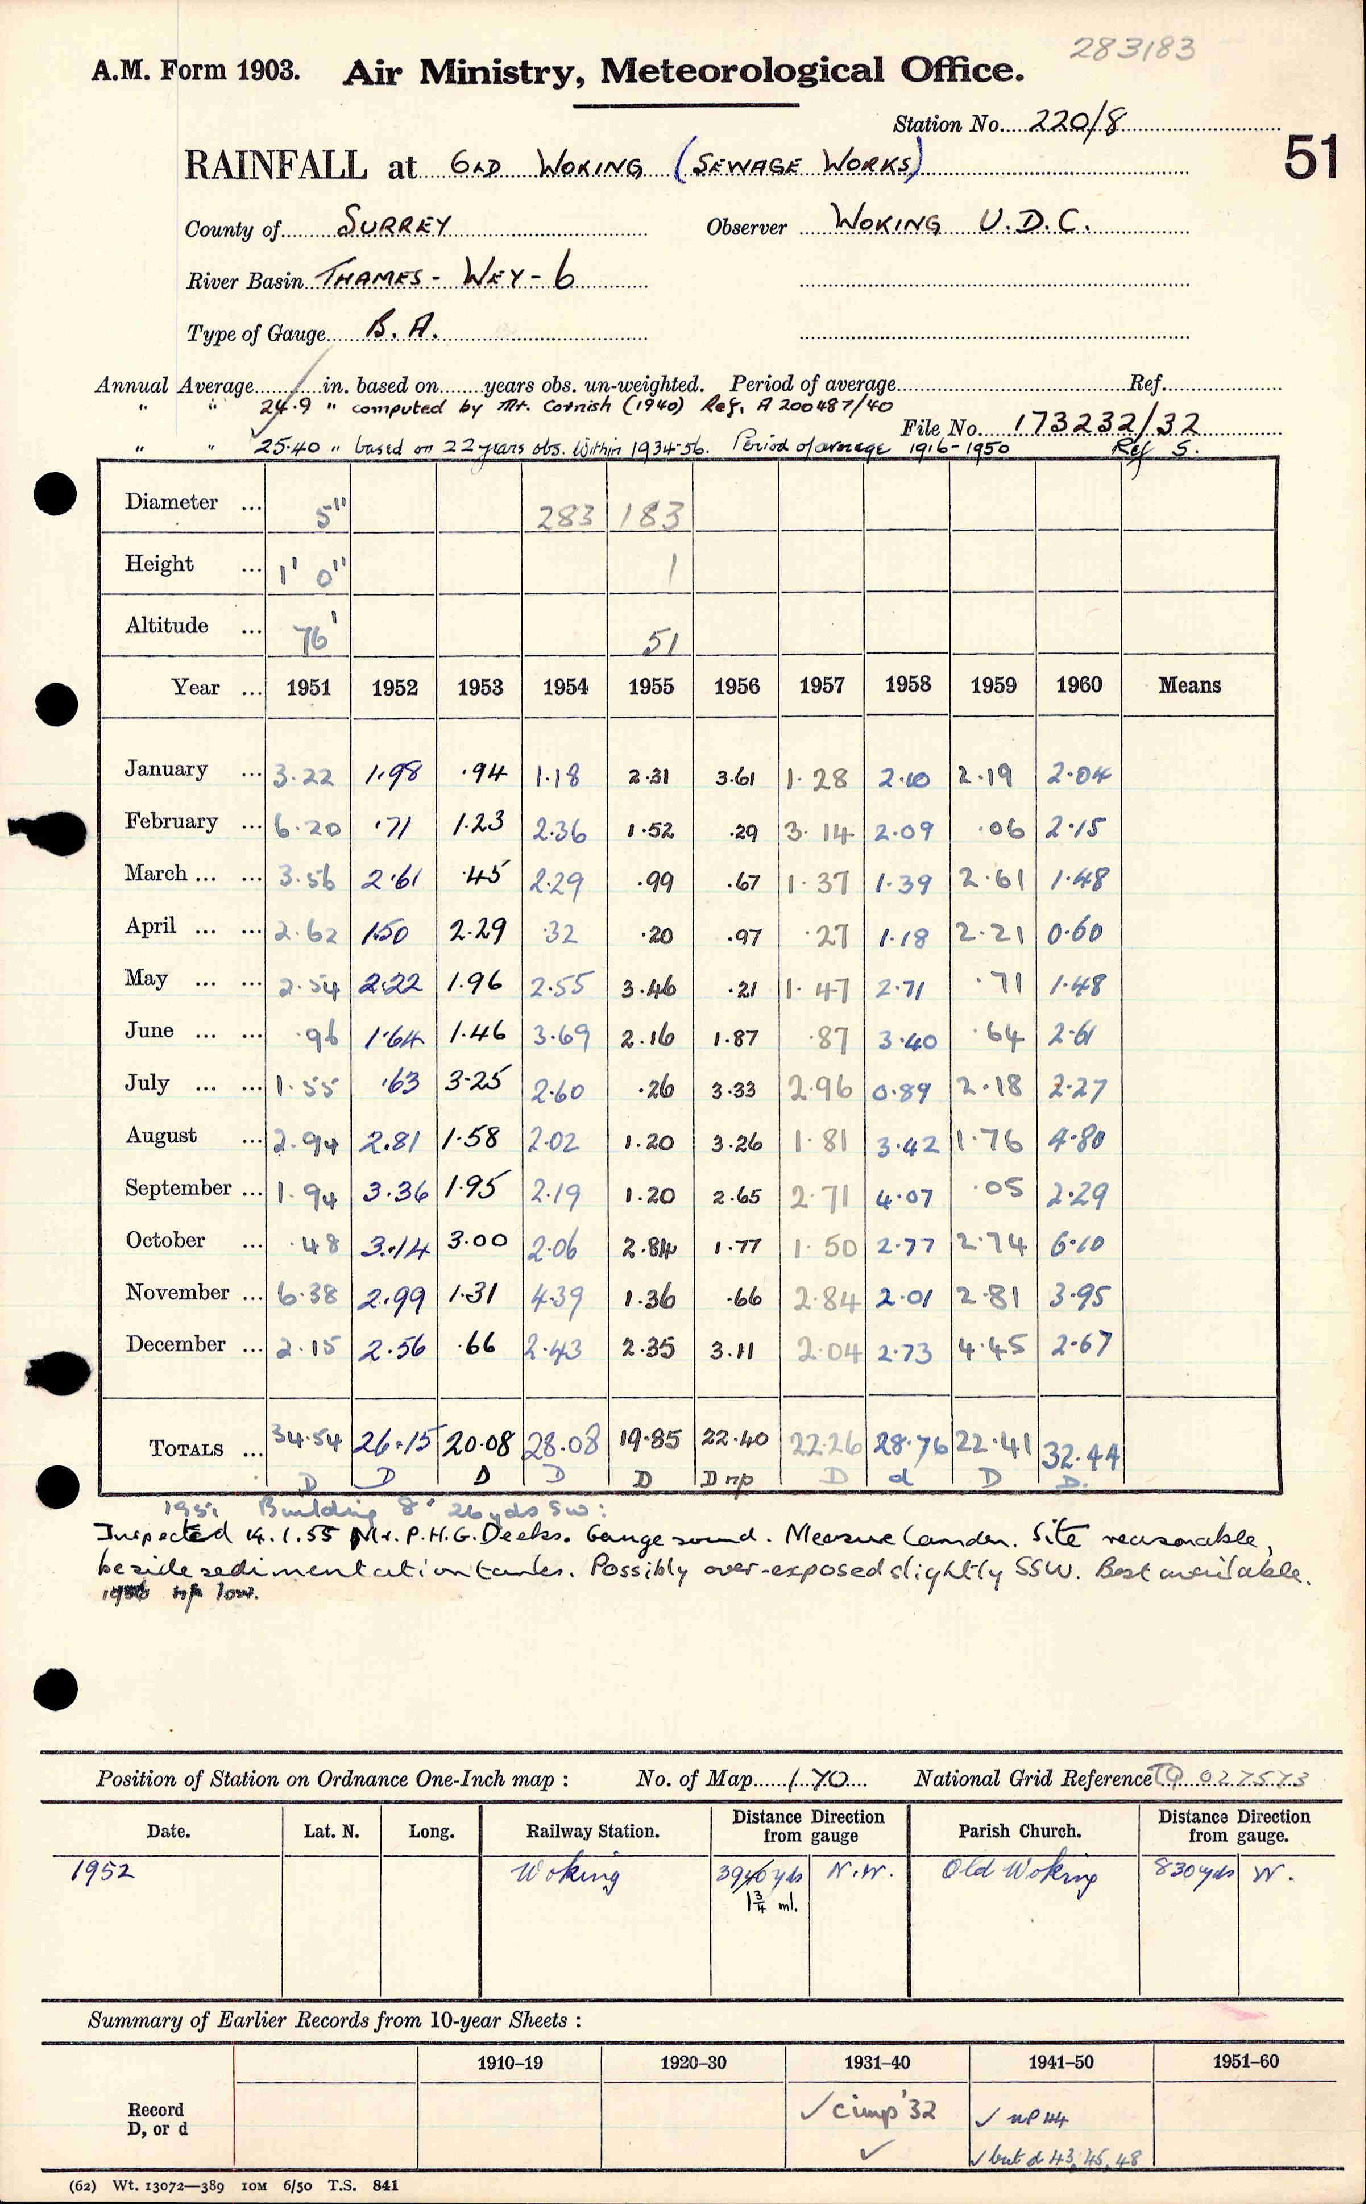 283183
A.M. Form 1903. Air Ministry, Meteorological Office.
Station No. 220/8
51
RAINFALL at OLD WOKING (SEWAGE WORKS)
County of SURREY Observer WOKING U.D.C.
River Basin THAMES - WEY - 6
Type of Gauge B.A.
Annual Average in. based on years obs. un-weighted. Period of average Ref.
" " 24.9 " computed by Mr. Cornish (1940) Ref. A 200487/40
File No. 173232/32
" " 25.40 " based on 22 years obs. within 1934-56. Period of average 1916-1950 Ref S.
Diameter ... 5" 283 183
Height ... 1' 0" 1
Altitude ... 76' 51
Year ... 1951 1952 1953 1954 1955 1956 1957 1958 1959 1960 Means
January ... 3.22 1.98 .94 1.18 2.31 3.61 1.28 2.10 2.19 2.04
February ... 6.20 .71 1.23 2.36 1.52 .29 3.14 2.09 .06 2.15
March ... ... 3.56 2.61 .45 2.29 .99 .67 1.37 1.39 2.61 1.48
April ... ... 2.62 1.50 2.29 .32 .20 .97 .27 1.18 2.21 0.60
May ... ... 2.54 2.22 1.96 2.55 3.46 .21 1.47 2.71 .71 1.48
June ... ... .96 1.64 1.46 3.69 2.16 1.87 .87 3.40 .64 2.61
July ... ... 1.55 .63 3.25 2.60 .26 3.33 2.96 0.89 2.18 2.27
August ... 2.94 2.81 1.58 2.02 1.20 3.26 1.81 3.42 1.76 4.80
September ... 1.94 3.36 1.95 2.19 1.20 2.65 2.71 4.07 .05 2.29
October ... .48 3.14 3.00 2.06 2.84 1.77 1.50 2.77 2.74 6.10
November ... 6.38 2.99 1.31 4.39 1.36 .66 2.84 2.01 2.81 3.95
December ... 2.15 2.56 .66 2.43 2.35 3.11 2.04 2.73 4.45 2.67
TOTALS ... 34.54 26.15 20.08 28.08 19.85 22.40 22.26 28.76 22.41 32.44
D D D D D D np D d D D.
1951 Building 8' 26 yds SW:
Inspected 14.1.55 Mr. P.H.G. Deeks. Gauge sound. Measure Camden. Site reasonable,
beside sedimentation tanks. Possibly over-exposed slightly SSW. Best available.
1956 np low.
Position of Station on Ordnance One-Inch map : No. of Map 170 National Grid Reference TQ 027573
Date. Lat. N. Long. Railway Station. Distance Direction from gauge Parish Church. Distance Direction from gauge.
1952 Woking 3940 yds N.W. Old Woking 830 yds W.
1¾ ml.
Summary of Earlier Records from 10-year Sheets :
1910-19 1920-30 1931-40 1941-50 1951-60
Record D, or d ✓ c imp '32 ✓ np 44
✓ ✓ but d 43, 45, 48
(62) Wt. 13072—389 10M 6/50 T.S. 841